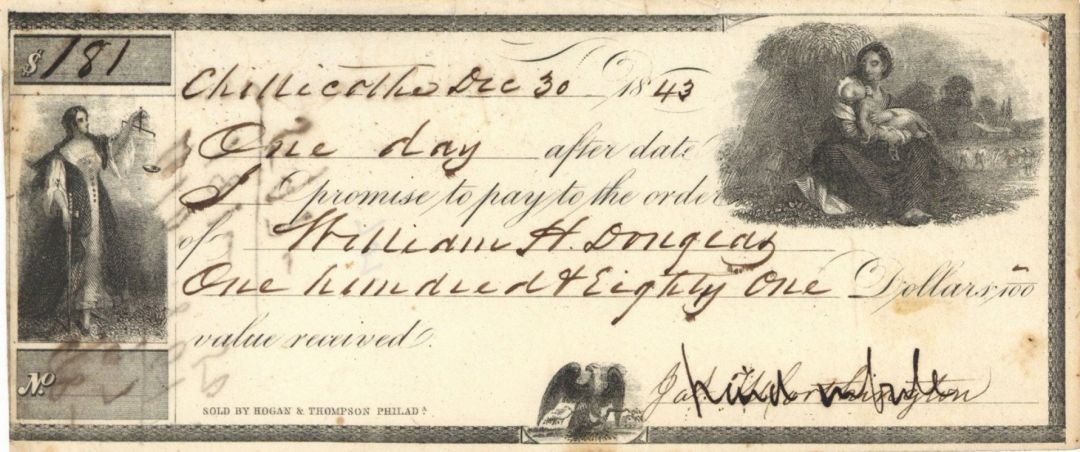 $ 181
Chillicothe Dec 30 1843
One day after date
I promise to pay to the order
of William H. Douglas
One hundred & Eighty One Dollars, 100
value received.
No
SOLD BY HOGAN & THOMPSON PHILADA.